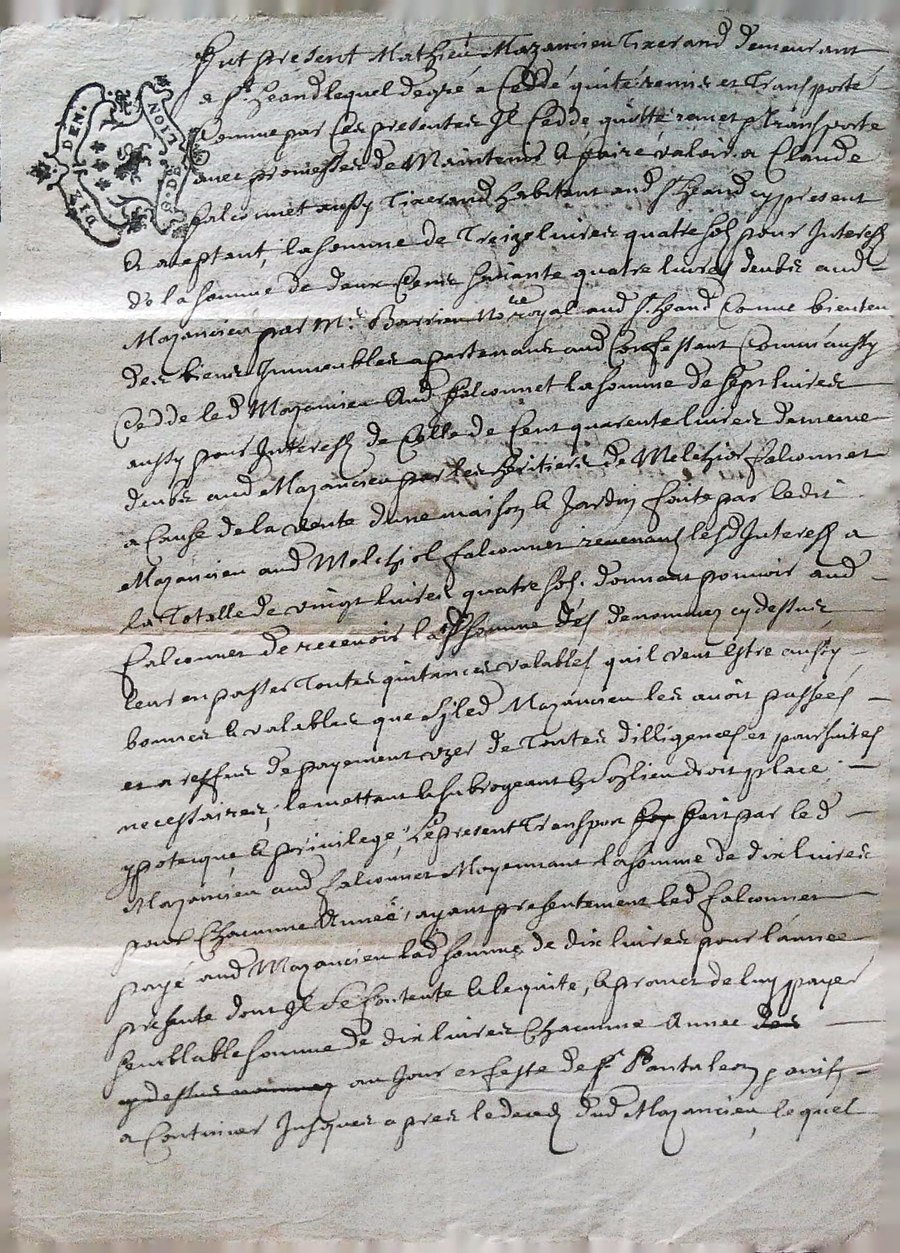 DIX DEN.
LION
S. D. P.
Fut present Mathieu Mazancieu Tixerand demeurant
a St Jeand lequel de gré a Ceddé quité remis et Transporté
Comme par Ces presentes Il Cedde quitte remet & transporte
avec promesses de Maintenir & faire valoir a Claude
falconnet aussy Tixerand habitant aud St Jeand cy present
& aceptant, la somme de Treize livres quatre sols pour Interest
de la somme de deux Cents soixante quatre livres deubs aud
Mazancieu par Me Barrieu Nore royal aud St Jeand Comme bientenu
des biens Immeubles apartenans aud Confessant Comme aussy
Cedde led Mazancieu Aud falconnet la somme de sept livres
aussy pour Interest de Celle de Cent quarente livres de mesme
deubs aud Mazancieu par les heritiers de Melchior falconnet
a Cause de la vente d'une maison & Jardin faite par ledit
Mazancieu aud Melchiol falconnet revenant lesd Interest a
la Totalle de vingt livres quatre sols, donnant pouvoir aud
falconnet de recevoir lad somme des denommez cy dessus
leur en passer Toutes quitances valables qu'il veut Estre aussy
bonnes & valables que sy led Mazancieu les avoit passées
et a reffus de payement uzer de Toutes dilligences et poursuites
necessaires, le mettant & subrogeant En son lieu droit place,
ypoteique & privilege, le present Transport fait par led
Mazancieu aud falconnet Moyennant la somme de dix livres
pour Chacunne Année, ayant presentement led falconnet
payé aud Mazancieu lad somme de dix livres pour l'année
presente dont Il se Contente & le quite, & promet de luy payer
semblable somme de dix livres Chacunne Année des
cy dessus nommez au Jour et feste de St Pantaleon
a Continuer Jusques apres le deceds dud Mazancieu, lequel